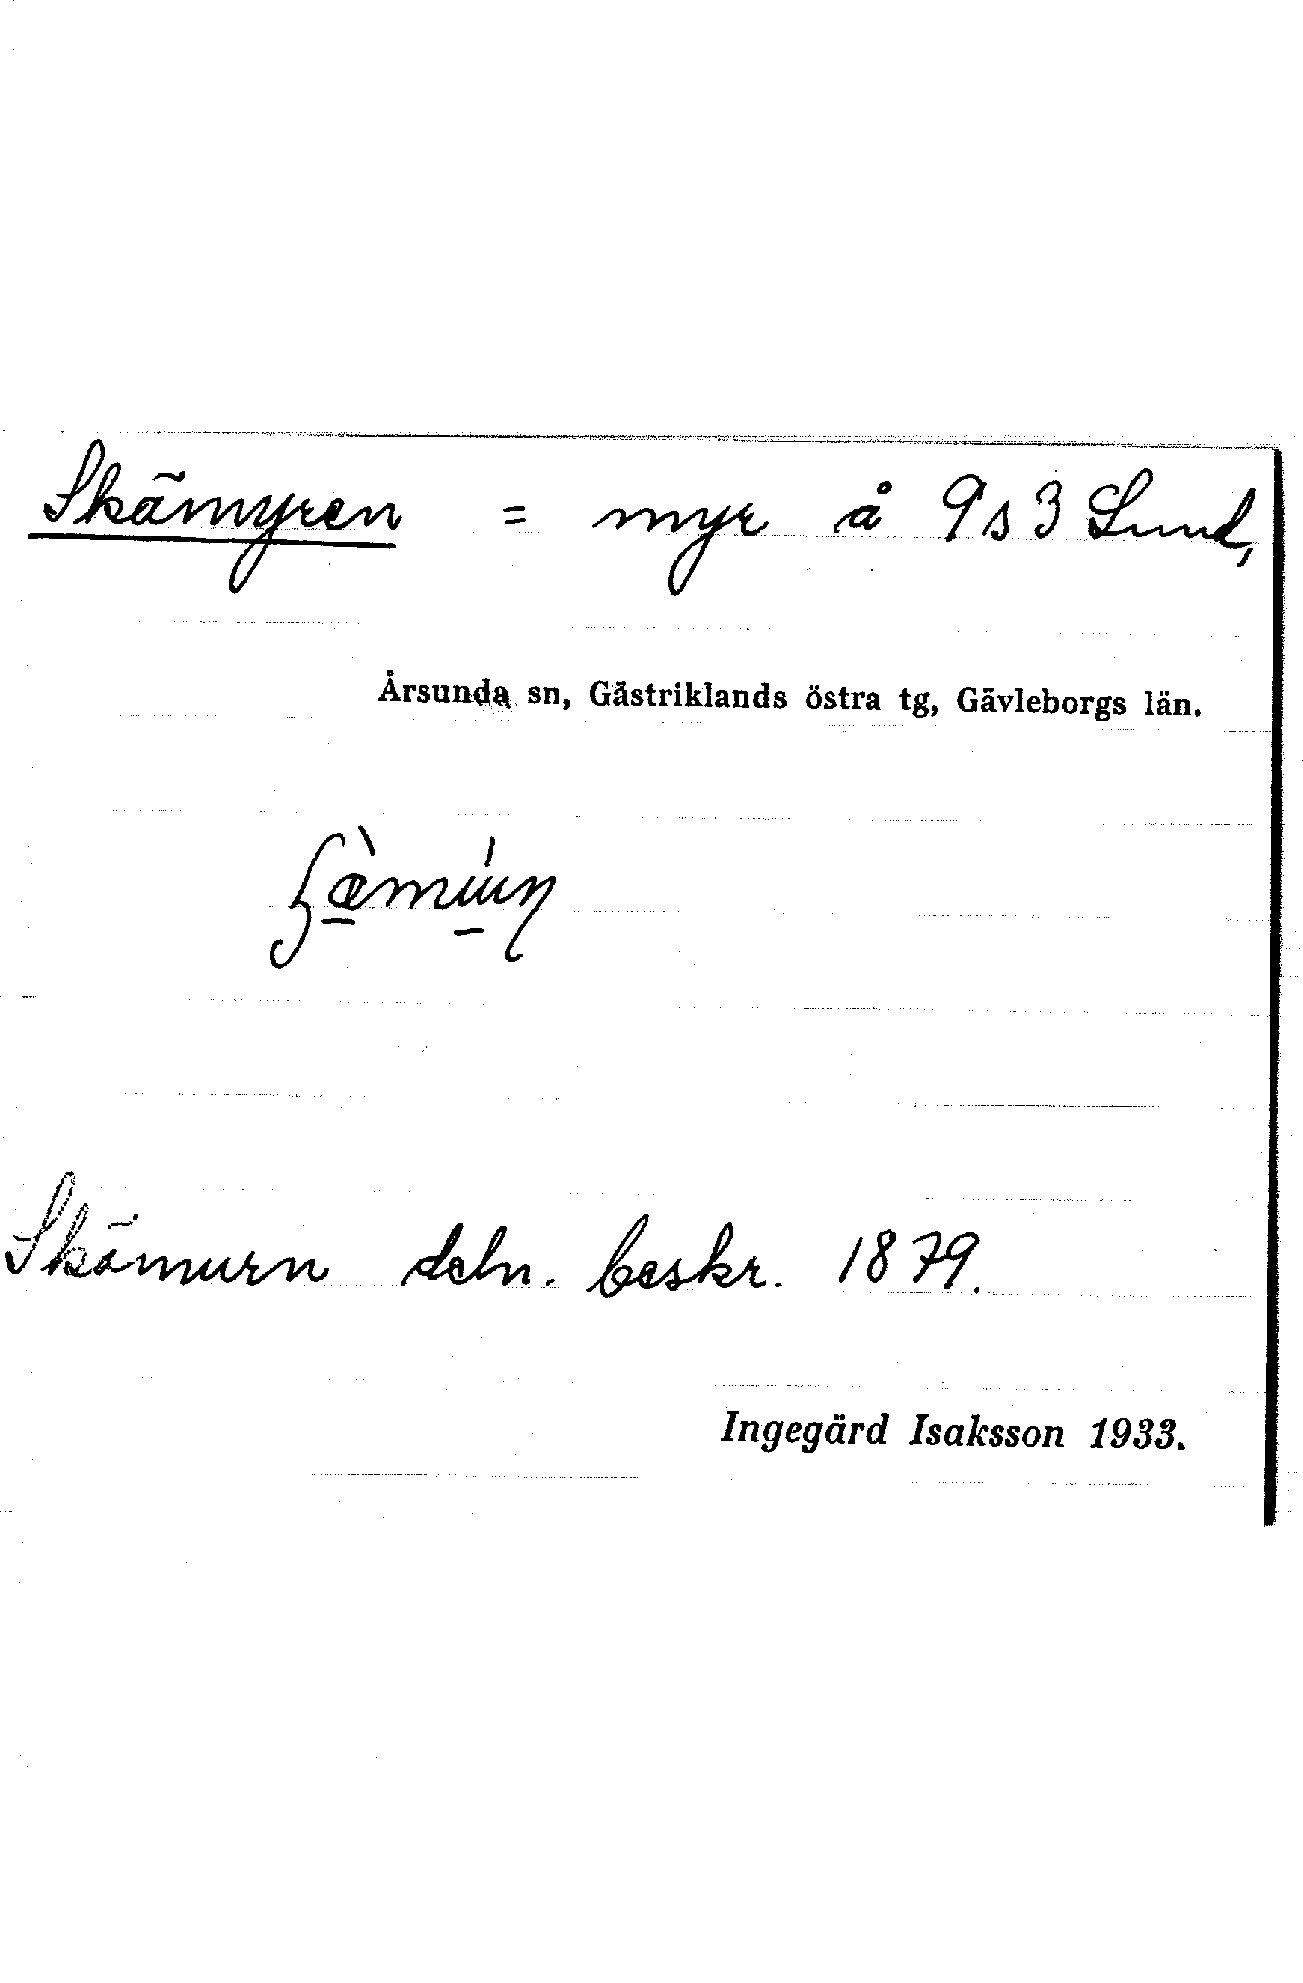 Skämyren = myr å 9s3 Lund,
Årsunda sn, Gästriklands östra tg, Gävleborgs län.
Skämurn deln. beskr. 1879.
Ingegärd Isaksson 1933.